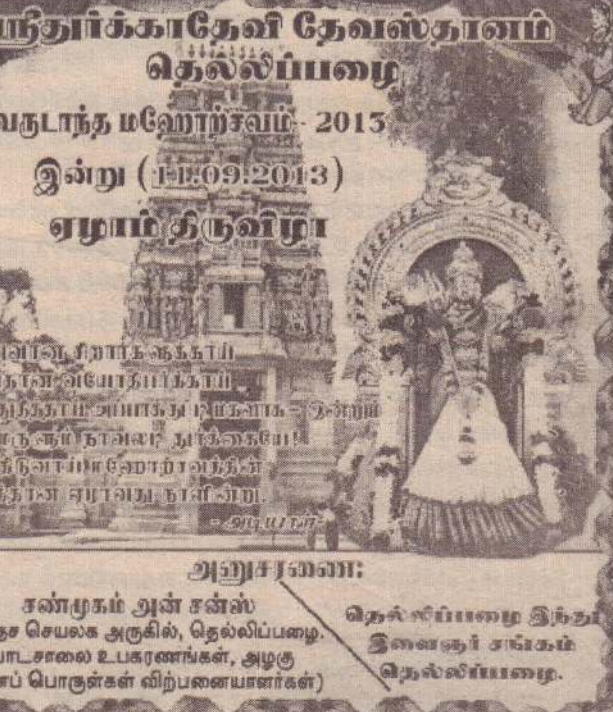 ஸ்ரீதுர்க்காதேவி தேவஸ்தானம்
தெல்லிப்பழை
வருடாந்த மஹோற்சவம் - 2013
இன்று (11.09.2013)
ஏழாம் திருவிழா
சிறார்களுக்காய்
வயோதிபர்க்காய்
இன்றும்
துர்க்கையே!
ஏழாவது நாளின்று.
- அடியாள் -
அனுசரணை:
சண்முகம் அன் சன்ஸ்
செயலக அருகில், தெல்லிப்பழை.
பாடசாலை உபகரணங்கள், அழகு
பொருள்கள் விற்பனையாளர்கள்)
தெல்லிப்பழை இந்து
இளைஞர் சங்கம்
தெல்லிப்பழை.